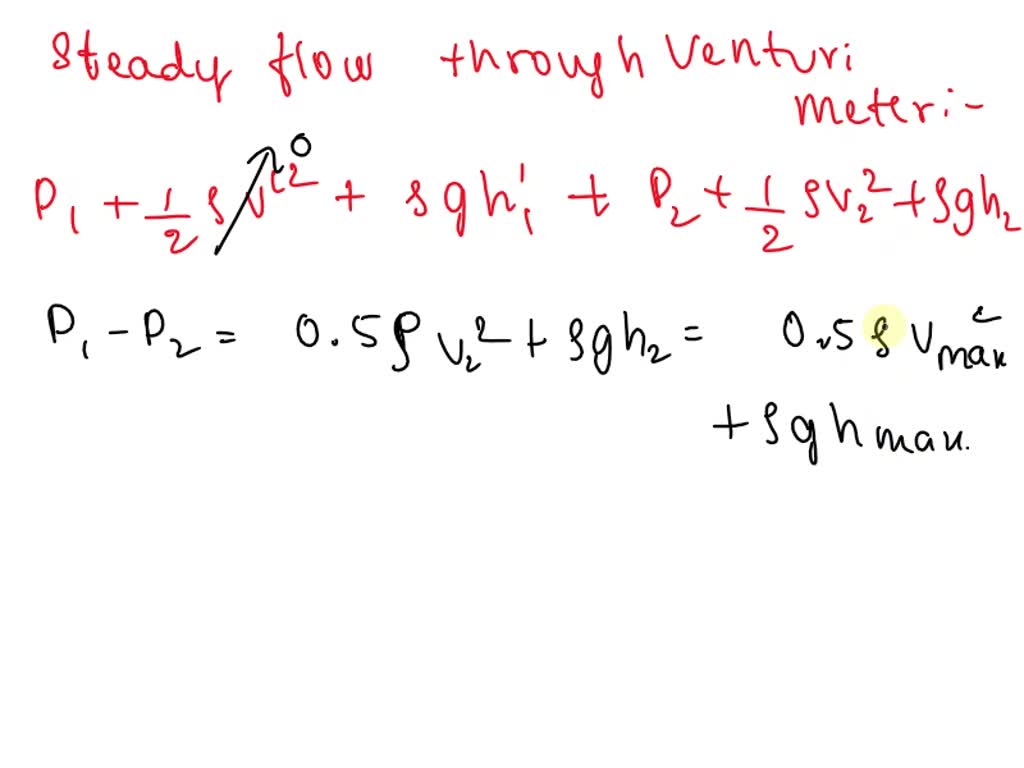 Steady flow through Venturi
meter:-
0
P₁ + 1/2 ρ v₁² + ρgh₁ + P₂ + 1/2 ρv₂² + ρgh₂
P₁ - P₂ = 0.5 ρ v₂² + ρgh₂ = 0.5 ρ v²max
+ ρgh max.